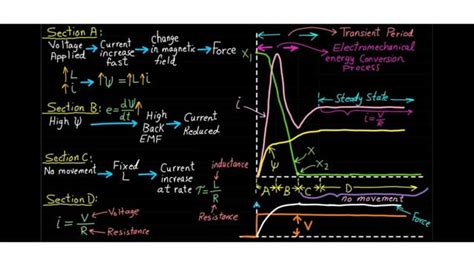 Section A:
Voltage Applied → Current increase fast → Change in magnetic field → Force
↑L
↓i → ↑Ψ = ↑L↑i
Section B: e = dΨ/dt ↑
High Ψ → High Back EMF → Current Reduced
Section C:
No movement → Fixed L → Current increase at rate τ = L/R
inductance
Resistance
Section D:
i = V/R
Voltage
Resistance
Transient Period
Electromechanical energy Conversion Process
X₁
i
Steady State
i = V/R
Ψ
X
X₂
A B C D
no movement
Force
V